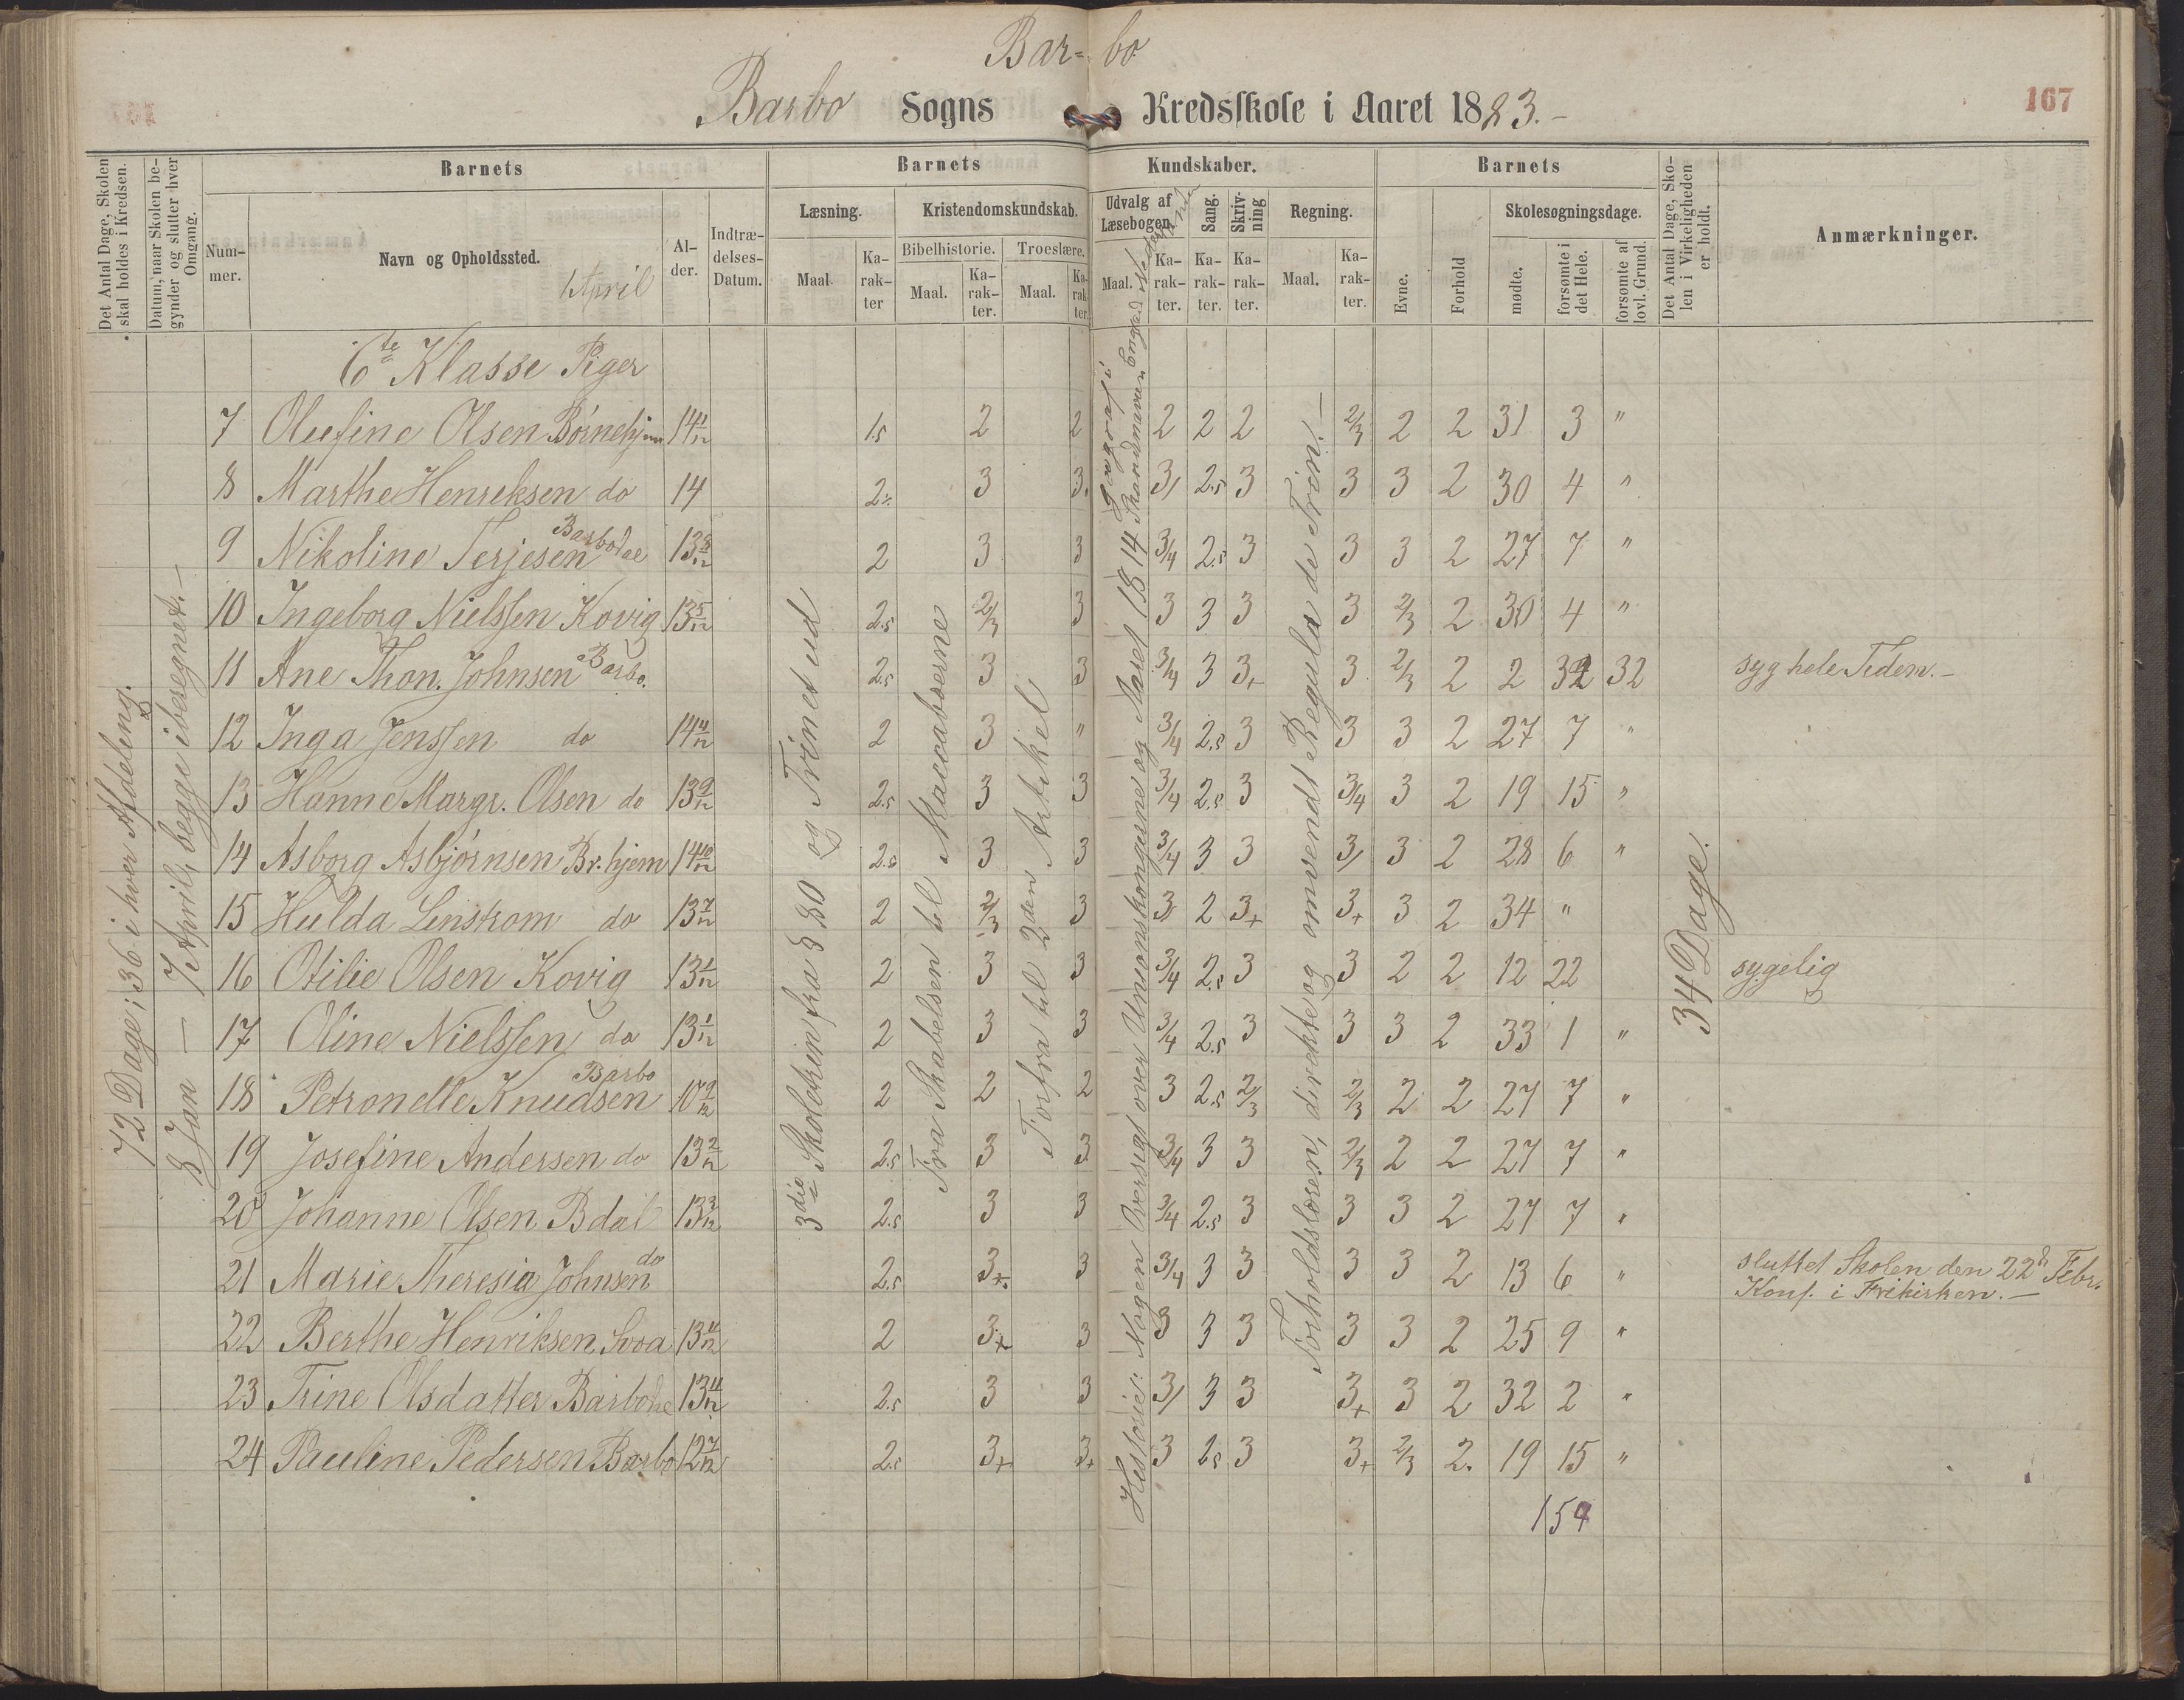 Bar- bo
Barbo Sogns Kredsskole i Aaret 1883.-
167
Det Antal Dage, Skolen skal holdes i Kredsen.
Datum, naar Skolen begynder og slutter hver Omgang.
Barnets
Nummer.
Navn og Opholdssted.
April
Alder.
Indtrædelses-Datum.
Barnets Kundskaber.
Læsning.
Maal.
Karakter
Kristendomskundskab.
Bibelhistorie.
Maal.
Karakter.
Troeslære.
Maal.
Karakter.
Udvalg af Læsebogen.
Maal.
Karakter.
Sang.
Karakter.
Skrivning
Karakter.
Regning.
Maal.
Karakter.
Barnets
Evne.
Forhold
Skolesøgningsdage.
mødte.
forsømte i det Hele.
forsømte af lovl. Grund.
Det Antal Dage, Skolen i Virkeligheden er holdt.
Anmærkninger.
72 Dage; 36 i hver Afdeling.
8 Jan — 7 April, begge iberegnet.—
3die Skoletrin fra § 80 og Trinet ud
Fra Skabelsen til Maccabæerne
Forfra til 2den Artikel
Historie: Nogen Oversigt over Unionskongerne og Aaret 1814
Forholdslæren, direkte og omvendt Regula de Trin.—
34 Dage.
6te Klasse Piger
7 Olufine Olsen Børnehjem 14 1/12 1.5 2 2 2 2 2 2/3 2 2 31 3 "
8 Marthe Henriksen do 14 2½ 3 3. 3/ 2.5 3 3 3 2 30 4 "
9 Nikoline Terjesen Barbodal 13 8/12 2 3 3 3/4 2.5 3 3 3 2 27 7 "
10 Ingeborg Nielssen Kovig 13 5/12 2.5 2/3 3 3 3 3 3 2/3 2 30 4 "
11 Ane Thon. Johnsen Barbo. 2.5 3 3 3/4 3 3+ 3 2/3 2 2 32 32 syg hele Tiden.-
12 Inga Jenssen do 14 4/12 2 3 " 3/4 2.5 3 3 3 2 27 7 "
13 Hanne Margr. Olsen do 13 9/12 2.5 3 3 3/4 2.5 3 3/4 3 2 19 15 "
14 Asborg Asbjørnsen Br. hjem 14 10/12 2.5 3 3 3/4 3 3 3/ 3 2 28 6 "
15 Hulda Lenstrom do 13 7/12 2 2/3 3 3/ 2 3+ 3+ 3 2 34 "
16 Otilie Olsen Kovig 13 1/12 2 3 3 3/4 2.5 3 3 2 2 12 22 sygelig
17 Oline Nielssen do 13 1/12 2 3 3 3/4 2.5 3 3 3 2 33 1 "
18 Petronelle Knudsen Barbo 10 9/12 2 2 2 3 2.5 2/3 2/3 2 2 27 7 "
19 Josefine Andersen do 13 2/12 2.5 3 3 3/4 3 3 2/3 2 2 27 7 "
20 Johanne Olsen B.dal 13 3/12 2.5 3 3 3/4 2.5 3 3 3 2 27 7 "
21 Marie Theresia Johnsen do 2.5 3+ 3 3/4 3 3 3 3 2 13 6 " sluttet Skolen den 22d Febr. Konf. i Frikirken.—
22 Berthe Henriksen 13 4/12 2 3+ 3 3 3 3 3 3 2 25 9 "
23 Trine Olsdatter 13 11/12 2.5 3 3 3/ 3 3 3+ 3 2 32 2 "
24 Pauline Pedersen Barbo 12 7/12 2.5 3+ 3+ 3 2.5 3 3+ 2/3 2. 19 15 "
154